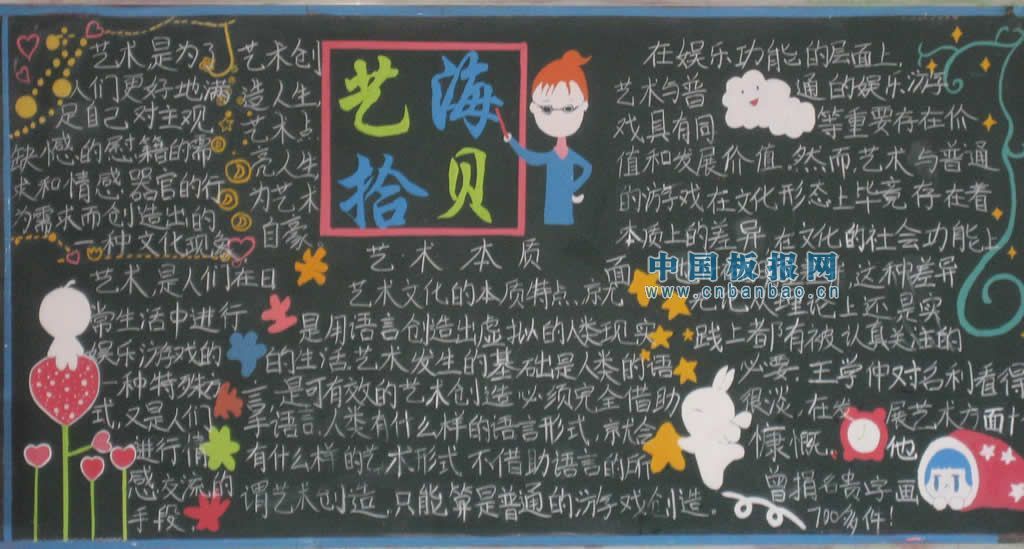 艺术是为了
人们更好地满
足自己对主观
缺憾的慰籍的需
求和情感器官的行
为需求而创造出的
一种文化现象
艺术是人们在日
常生活中进行
娱乐游戏的
一种特殊方
式,又是人们
进行情
感交流的
手段.
艺术创
造人生,
艺术点
亮人生
为艺术
自豪。
艺海
拾贝
艺术本质
艺术文化的本质特点,就
是用语言创造出虚拟的人类现实
的生活.艺术发生的基础是人类的语
言,是可有效的艺术创造必须完全借助
于语言.人类有什么样的语言形式,就会
有什么样的艺术形式.不借助语言的所
谓艺术创造,只能算是普通的游戏创造.
在娱乐功能的层面上,
艺术与普通的娱乐游
戏,具有同等重要存在价
值和发展价值.然而,艺术与普通
的游戏在文化形态上毕竟存在着
本质上的差异.在文化的社会功能上
面
这种差异
无论从理论上还是实
践上都有被认真关注的
必要.王学仲对名利看得
很淡,在发展艺术方面十
慷慨.他
曾捐名贵字画
700多件!
中国板报网
www.cnbanbao.cn